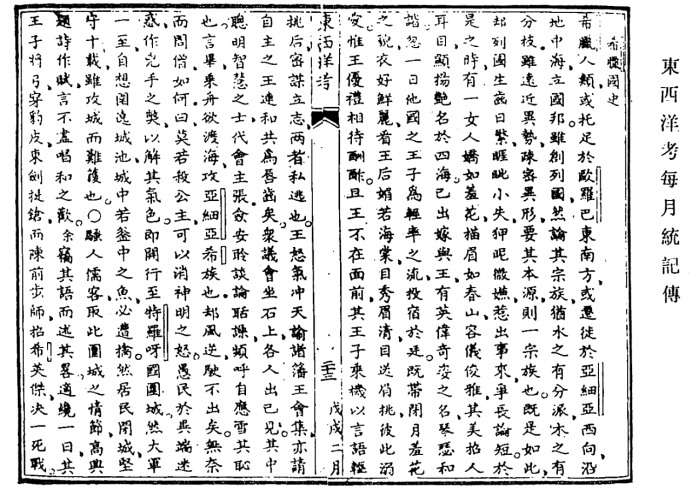 東西洋考每月統記傳
希臘國史
希臘人類或托足於歐羅巴東南方或遷徙於亞細亞西向沿
地中海立國邦雖創列國然論其宗族猶水之有分派木之有
分枝雖遠近異勢疎密異形要其本源則一宗族也既是如此
却列國生齒日繁睚眦小失狎昵微嫌惹出事來爭長論短於
是之時有一女人嬌如羞花描眉如春山容儀俊雅其美招人
耳目顯揚艷名於四海已出嫁與王有英偉奇姿之名琴瑟和
諧忽一日他國之王子爲輕率之流投宿於廷既帶閉月羞花
之貌衣好鮮麗看王后媚若海棠目秀眉清目送眉挑彼此溺
愛惟王優禮相待酬酢且王不在面前其王子乘機以言語輕
東西洋考
二十三
戊戌二月
挑后密謀立志兩者私逃也王怒氣冲天諭諸藩王會集亦請
自主之王連和共爲唇齒矣衆議會坐石上各人出已見其中
聰明智慧之士代會主張僉安聆談論聒譟頻呼自應雪其恥
也言畢乘舟欲渡海攻亞細亞希族也却風逆駛不出矣無奈
而問僧如何曰莫若殺公主可以消神明之怒愚民於異端迷
惑作兇手之獘以解其氣色即開行至特羅呀國圍城然大軍
一至自想圍遶城池城中若釜中之魚必遭擒然居民閉城堅
守十載雖攻城而難獲也○騷人儒客取此圍城之情節高興
題詩作賦言不盡唱和之歡余竊其語而述其畧適纔一日其
王子將弓穿豹皮東劍徒鎗而陳前步師招希英傑決一死戰